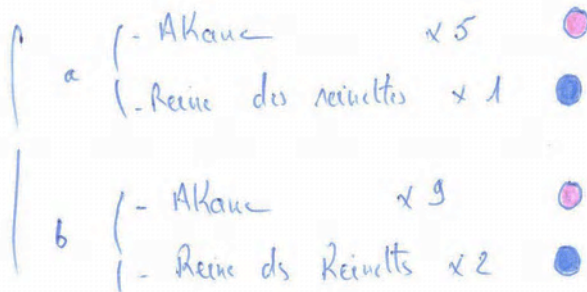 - AKane x 5
a
- Reine des reinettes x 1
- AKane x 9
b
- Reine ds Reinetts x 2